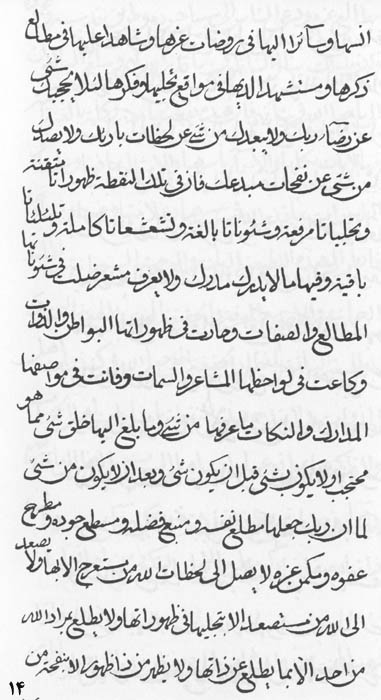 اليها و سائرا اليها فی روضات عزها و شاهدا عليها فی مطالع
ذكرها و مستشهدا لديها فی مواقع تجليها و فكرها لئلا يحجبك شیء
عن رضاء ربك و لا يبعدك من شیء عن لحظات بارئك و لا يصدك
من شیء عن نفحات مبدعك فان فی تلك النقطة ظهورات متقنة
و تجليات مرفعة و شئونات بالغة و تشعشعات كاملة و
باقية و فيها ما لا يدرك مدارك و لا يعرف مشعر ضلت فی شئونا
المطالع و الصفات و حارت فی ظهوراتها البواطن و الذوات
و كاعت فی لواحظها المشاعر و السمات و فاتت فی مواصفها
المدارك و النكات ما عرفها من شیء و ما بلغ اليها خلق شیء مما هو
محتجب اولا يكون بشیء قبل ان يكون شیء و بعد ان لا يكون من شیء
لما ان ربك جعلها مطلع نفسه و منبع فضله و مسطع جوده و مطرح
عفوه و مكمن عزه لا يصل الی لحظات الله من مستعرج الا بها و لا يصعد
الی الله من مستصعد الا بتجليها فی ظهوراتها و لا يطلع بمراد الله
من احد الا بما يطلع عن ذاتها و لا يظهر من ذا ظهور الا بنفحة من
۱۴